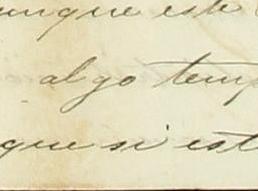 aunque este
algo temp
que si est